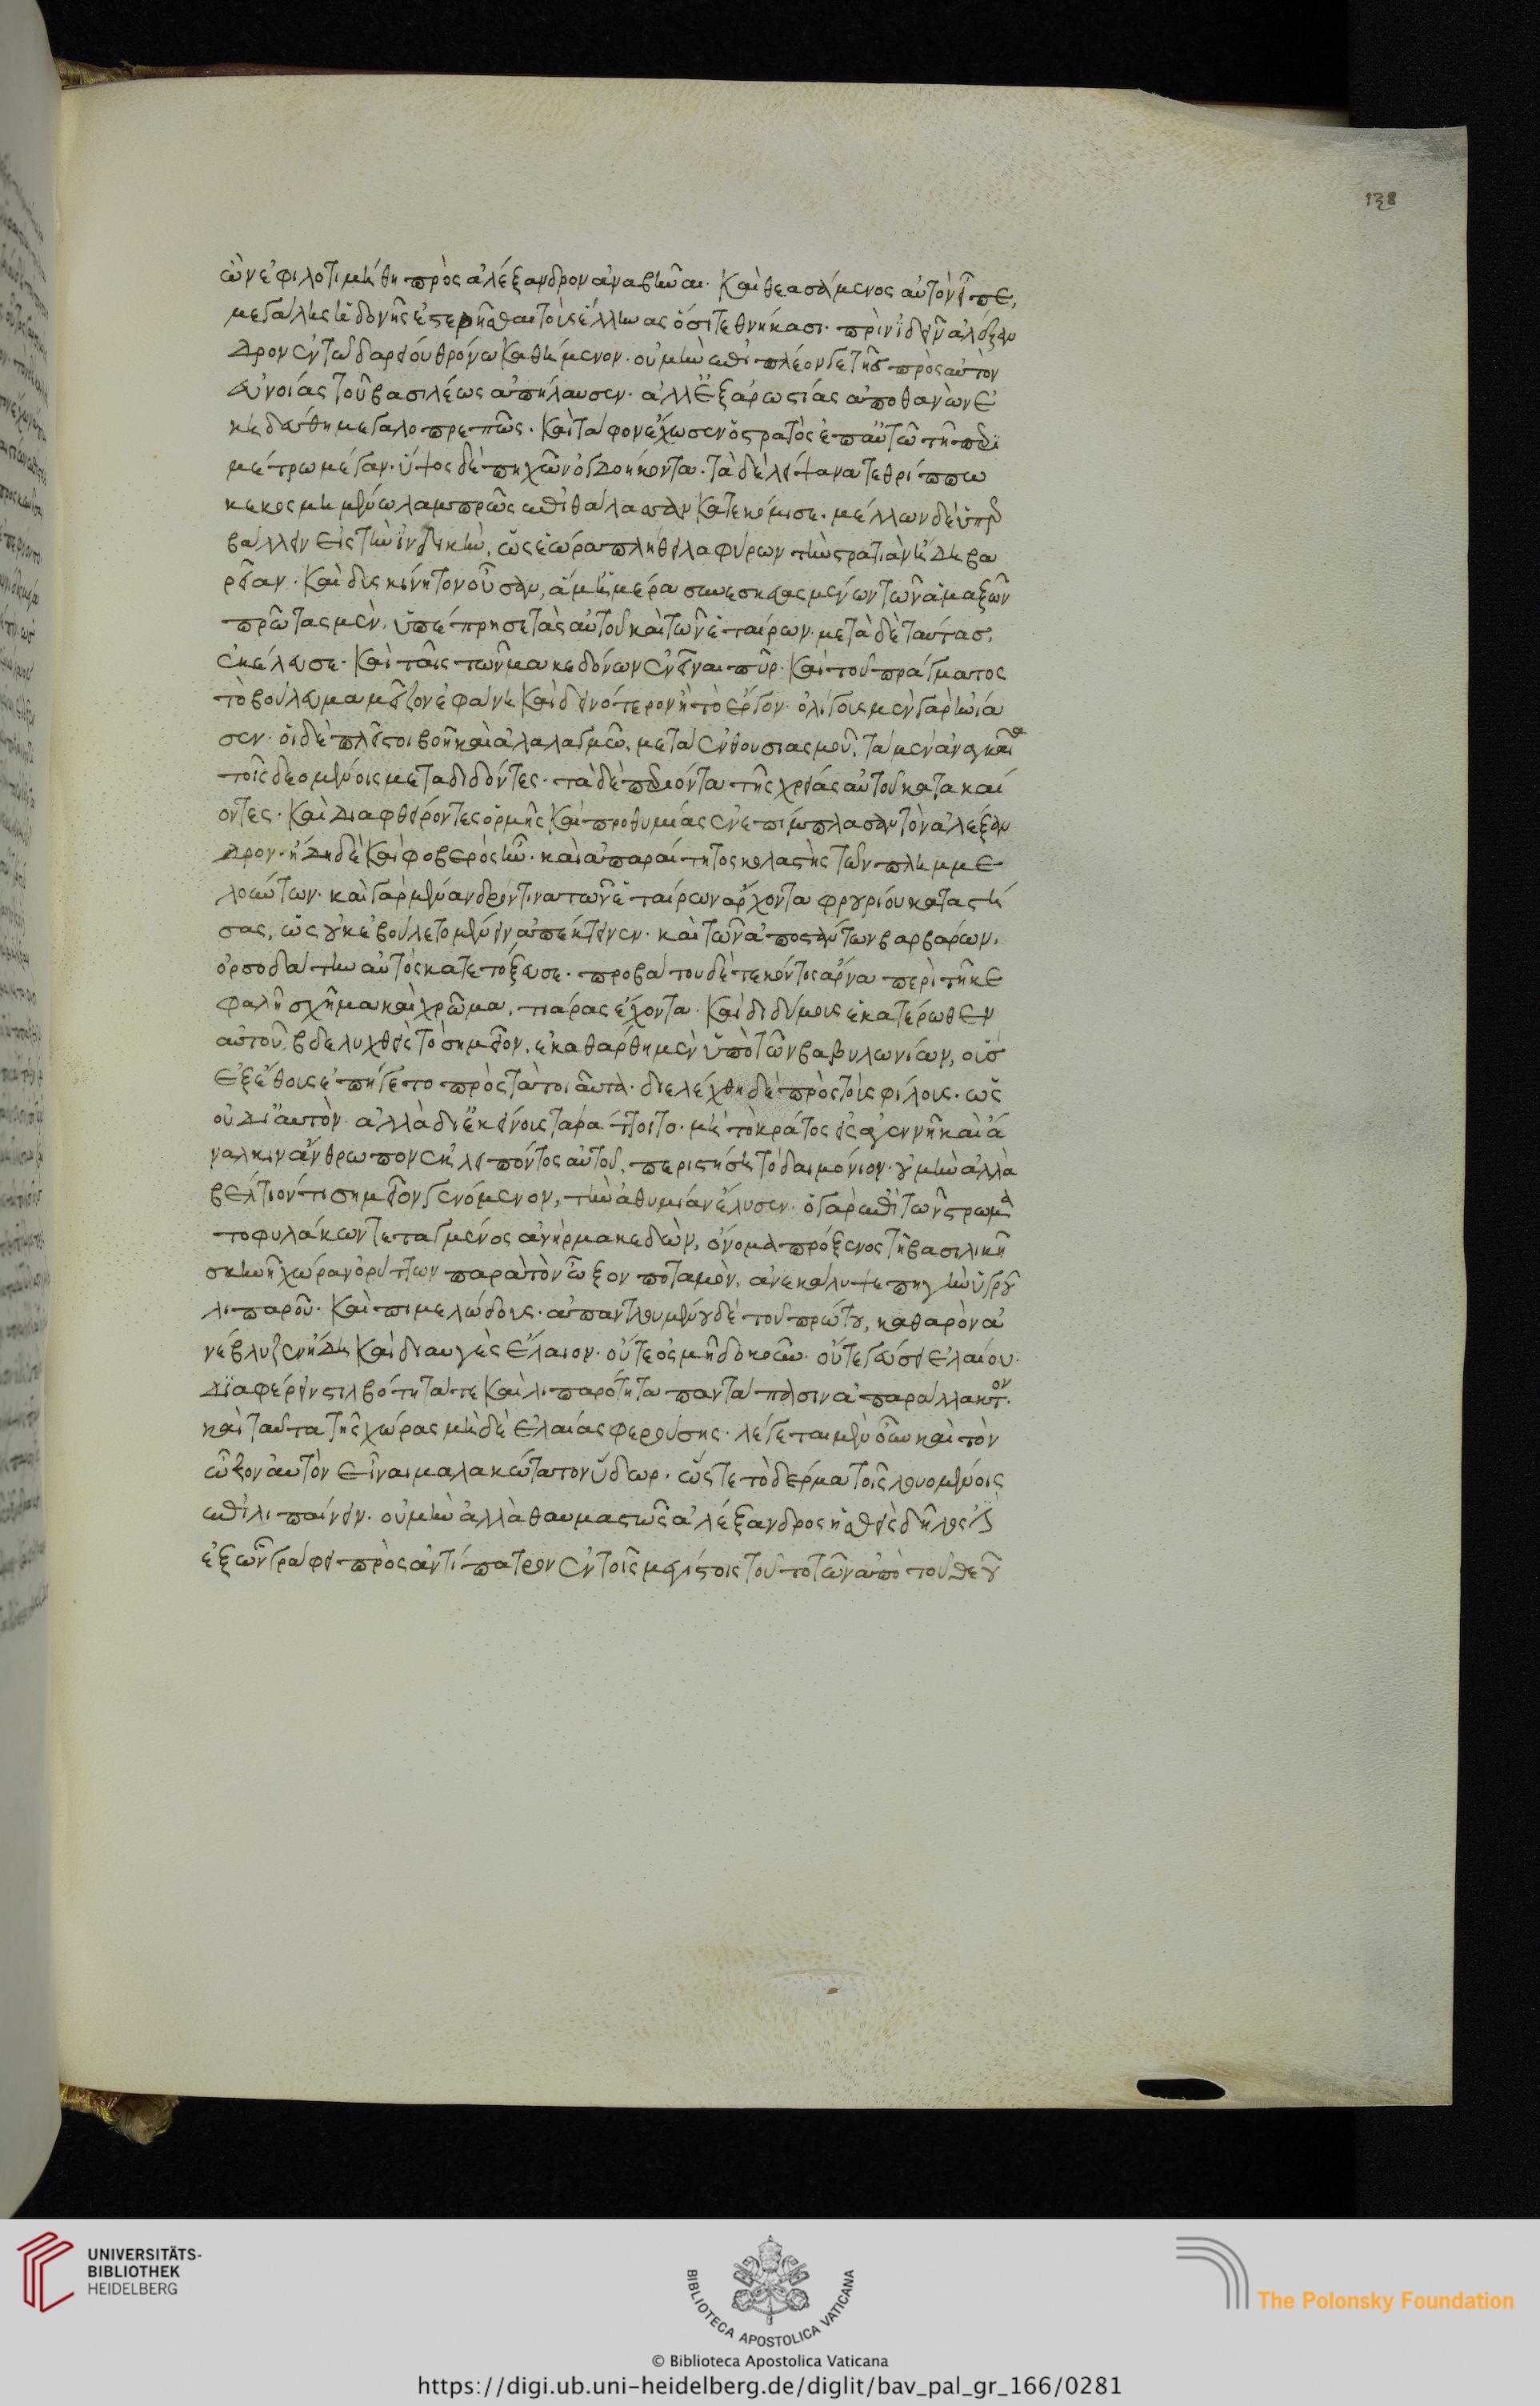 138
ὢν ἐφιλοτιμήθη πρὸς ἀλέξανδρον ἀναβῆναι· καὶ θεασάμενος αὐτὸν εἶπε,
μεγάλης ἡδονῆς ἐστερῆσθαι τοὺς ἕλληνας ὅσοι τεθνήκασι· πρὶν ἰδεῖν ἀλέξαν
δρον ἐν τῷ δαρείου θρόνω καθήμενον· οὐ μὴν ἐπὶ πλέον γε τῆς πρὸς αὐτὸν
εὐνοίας τοῦ βασιλέως ἀπήλαυσεν· ἀλλ' ἐξ ἀρωστίας ἀποθανὼν ἐ
κηδεύθη μεγαλοπρεπῶς· καὶ τάφον ἔχωσεν ὁ στρατὸς ἐπ' αὐτῶ τῆ περι
μέτρω μέγαν· ὕψος δὲ πηχῶν ὀγδοήκοντα· τὰ δὲ λείψανα τεθρίππω
κεκοσμημένω λαμπρῶς ἐπὶ θάλασσαν κατεκόμισε· μέλλων δὲ ὑπερ
βάλλειν εἰς τὴν ἰνδικὴν, ὡς ἑώρα πλήθει λαφύρων τὴν στρατιὰν ἤδη βα
ρεῖαν· καὶ δυσκίνητον οὖσαν, ἅμ' ἡμέρα συνεσκευασμένων τῶν ἁμαξῶν
πρώτας μὲν, ὑπέπρησε τὰς αὑτοῦ καὶ τῶν ἑταίρων· μετὰ δὲ ταύτας,
ἐκέλευσε· καὶ ταῖς τῶν μακεδόνων ἐνεῖναι πῦρ· καὶ τοῦ πράγματος
τὸ βούλευμα μεῖζον ἐφάνη καὶ δεινότερον ἢ τὸ ἔργον· ὀλίγους μὲν γὰρ ἠνία
σεν· οἱ δὲ πλεῖστοι βοῆ καὶ ἀλαλαγμῶ, μετὰ ἐνθουσιασμοῦ, τὰ μὲν ἀναγκαῖα
τοῖς δεομένοις μεταδιδόντες· τὰ δὲ περιόντα τῆς χρείας αὐτοὶ κατακαί
οντες· καὶ διαφθείροντες ὁρμῆς καὶ προθυμίας ἐνεπίμπλασαν τὸν ἀλέξαν
δρον· ἤδη δὲ καὶ φοβερὸς ἦν· καὶ ἀπαραίτητος κολαστὴς τῶν πλημμε
λούντων· καὶ γὰρ μένανδρόν τινα τῶν ἑταίρων ἄρχοντα φρουρίου καταστή
σας, ὡς οὐκ ἐβούλετο μένειν ἀπέκτεινεν· καὶ τῶν ἀποστάντων βαρβάρων,
ὀρσοδάτην αὐτὸς κατετόξευσε· προβάτου δὲ τεκόντος ἄρνα περὶ τῆ κε
φαλῆ σχῆμα καὶ χρῶμα, τιάρας ἔχοντα· καὶ διδύμους ἑκατέρωθεν
αὐτοῦ, βδελυχθεὶς τὸ σημεῖον, ἐκαθάρθη μὲν ὑπὸ τῶν βαβυλωνίων, οὓς
ἐξ ἔθους ἐπήγετο πρὸς τὰ τοιαῦτα· διελέχθη δὲ πρὸς τοὺς φίλους· ὡς
οὐ δι' αὑτὸν ἀλλὰ δι' ἐκείνους ταράττοιτο· μὴ τὸ κράτος εἰς ἀγεννῆ καὶ ἄ
ναλκιν ἄνθρωπον ἐκλιπόντος αὐτοῦ, περιστήση τὸ δαιμόνιον· οὐ μὴν ἀλλὰ
βέλτιόν τι σημεῖον γενόμενον, τὴν ἀθυμίαν ἔλυσεν· ὁ γὰρ ἐπὶ τῶν στρωμα
τοφυλάκων τεταγμένος ἀνὴρ μακεδὼν, ὄνομα πρόξενος τῆ βασιλικῆ
σκηνῆ χώραν ὀρύττων παρὰ τὸν ὦξον ποταμὸν, ἀνεκάλυψε πηγὴν ὑγροῦ
λιπαροῦ· καὶ πιμελώδους· ἀπαντλουμένου δὲ τοῦ πρώτου, καθαρὸν ἀ
νέβλυζεν ἤδη καὶ διαυγὲς ἔλαιον· οὔτε ὀσμῆ δοκοῦν· οὔτε γεύσει ἐλαίου·
διαφέρειν στιλβότητά τε καὶ λιπαρότητα παντάπασιν ἀπαράλλακτον·
καὶ ταῦτα τῆς χώρας μηδὲ ἐλαίας φερούσης· λέγεται μὲν οὖν καὶ τὸν
ὦξον αὐτὸν εἶναι μαλακώτατον ὕδωρ· ὥστε τὸ δέρμα τοῖς λουομένοις
ἐπιλιπαίνειν· οὐ μὴν ἀλλὰ θαυμαστῶς ἀλέξανδρος ἡσθεὶς δῆλός ἐστιν
ἐξ ὧν γράφει πρὸς ἀντίπατρον ἐν τοῖς μεγίστοις τοῦτο τῶν ἀπὸ τοῦ θεοῦ
UNIVERSITÄTS-
BIBLIOTHEK
HEIDELBERG
BIBLIOTECA APOSTOLICA VATICANA
The Polonsky Foundation
© Biblioteca Apostolica Vaticana
https://digi.ub.uni-heidelberg.de/diglit/bav_pal_gr_166/0281